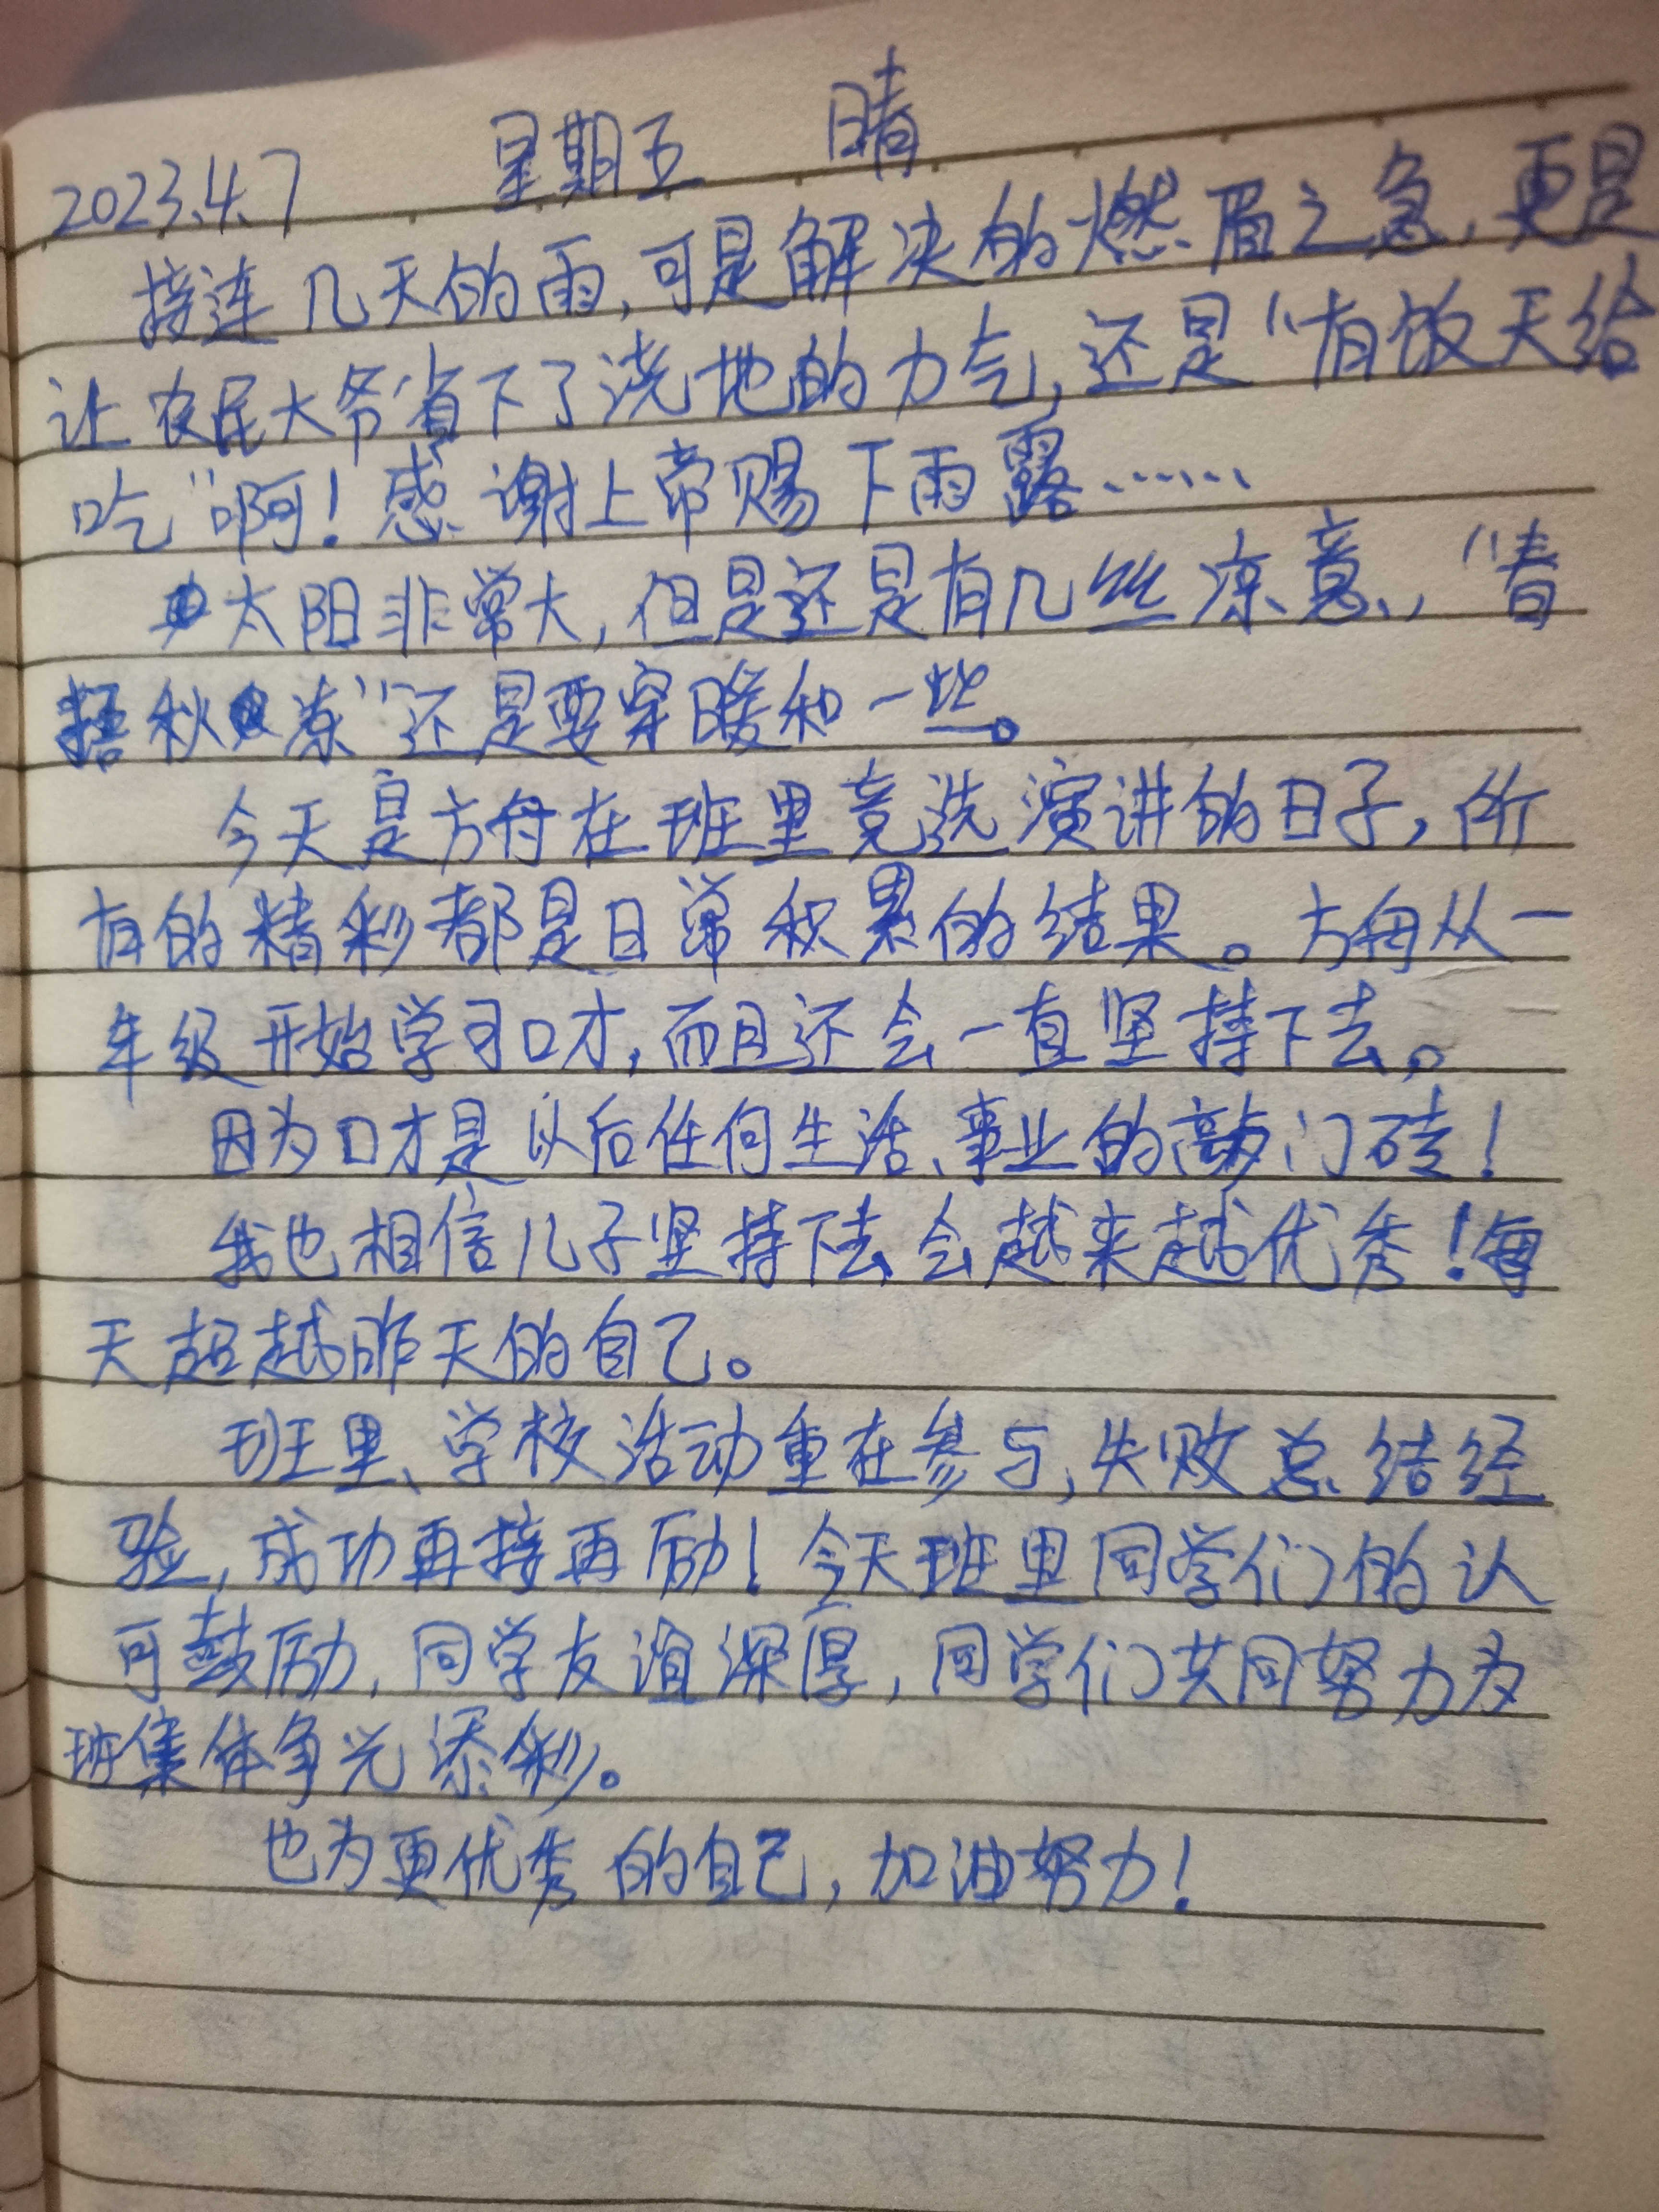 2023.4.7 星期五 晴
接连几天的雨,可是解决的燃眉之急,更是
让农民大爷省下了浇地的力气,还是“有饭天给
吃”啊!感谢上帝赐下雨露……
太阳非常大,但是还是有几丝凉意,“春
捂秋冻”还是要穿暖和一些。
今天是方舟在班里竞选演讲的日子,所
有的精彩都是日常积累的结果。方舟从一
年级开始学习口才,而且还会一直坚持下去。
因为口才是以后任何生活、事业的敲门砖!
我也相信儿子坚持下去会越来越优秀!每
天超越昨天的自己。
班里、学校活动重在参与,失败总结经
验,成功再接再励!今天班里同学们的认
可鼓励,同学友谊深厚,同学们共同努力为
班集体争光添彩。
也为更优秀的自己,加油努力!